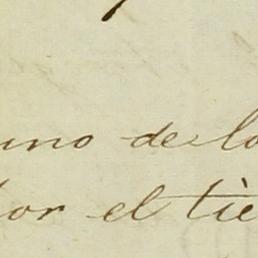 uno de lo
por el tie